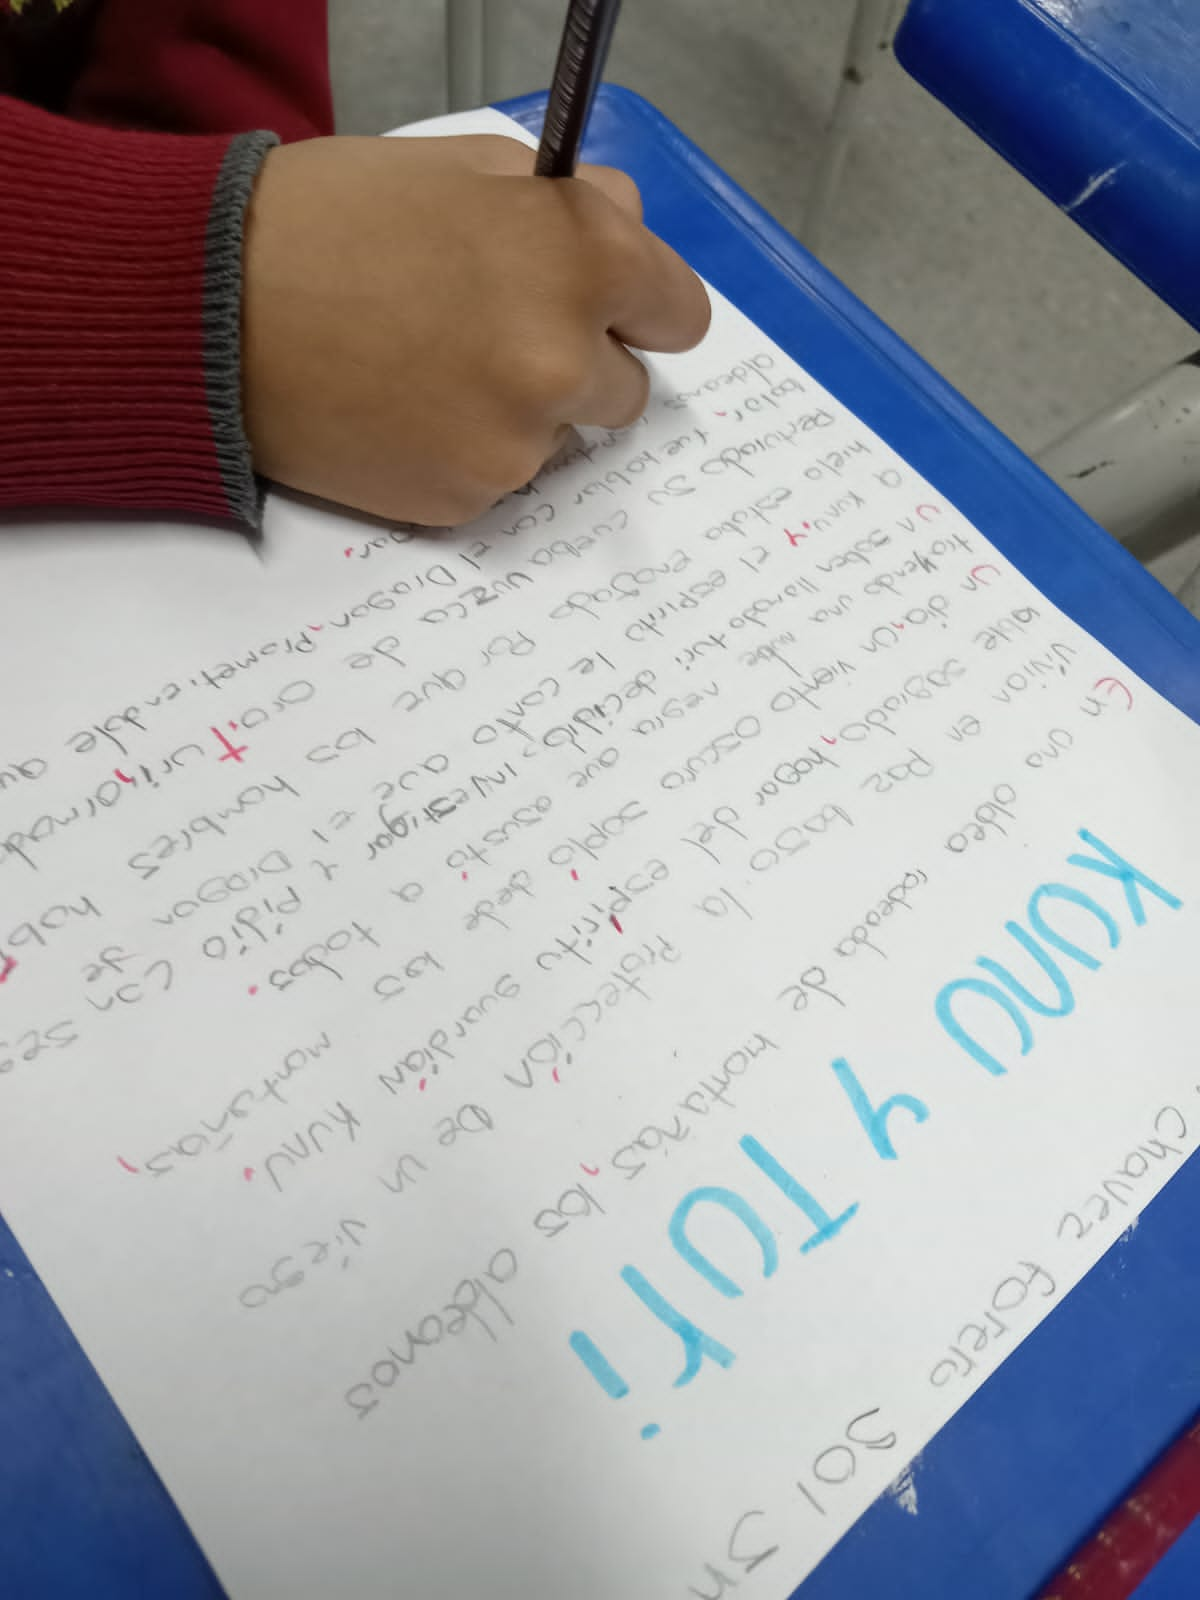 Chavez Forero Sol
Kunu y Turi
En una aldea rodeada de montañas, los aldeanos
vivian en paz bajo la protección De un viejo
sagrado, hogar del espíritu guardián KUNU.
Un dia, un viento oscuro sopló desde los montañas,
trayendo una nube negra que asustó a todos.
Un llamado turi decidió investigar y pidio
a Kunu, y el espirito le conto que El Dragon de
hielo estaba enojado por que los hombres
Perturado su cueba unzca de oro. turi, armado
fue hablar con El Dragon, Prometiendole
aldeanos